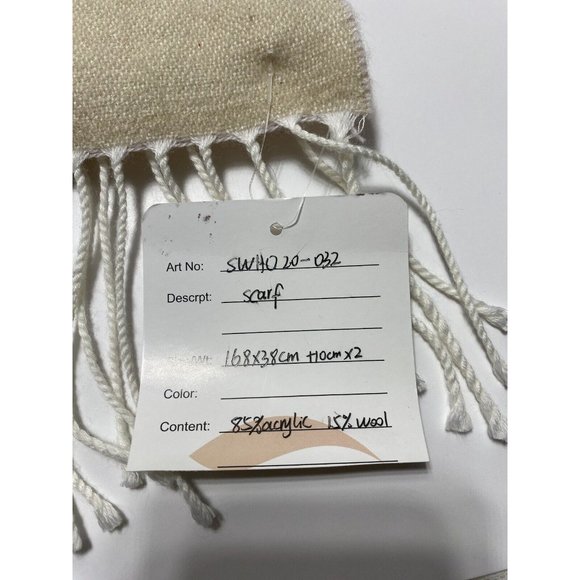 Art No: SWH020-032
Descrpt: scarf
168x38cm +10cm x2
Color:
Content: 85% acrylic 15% wool